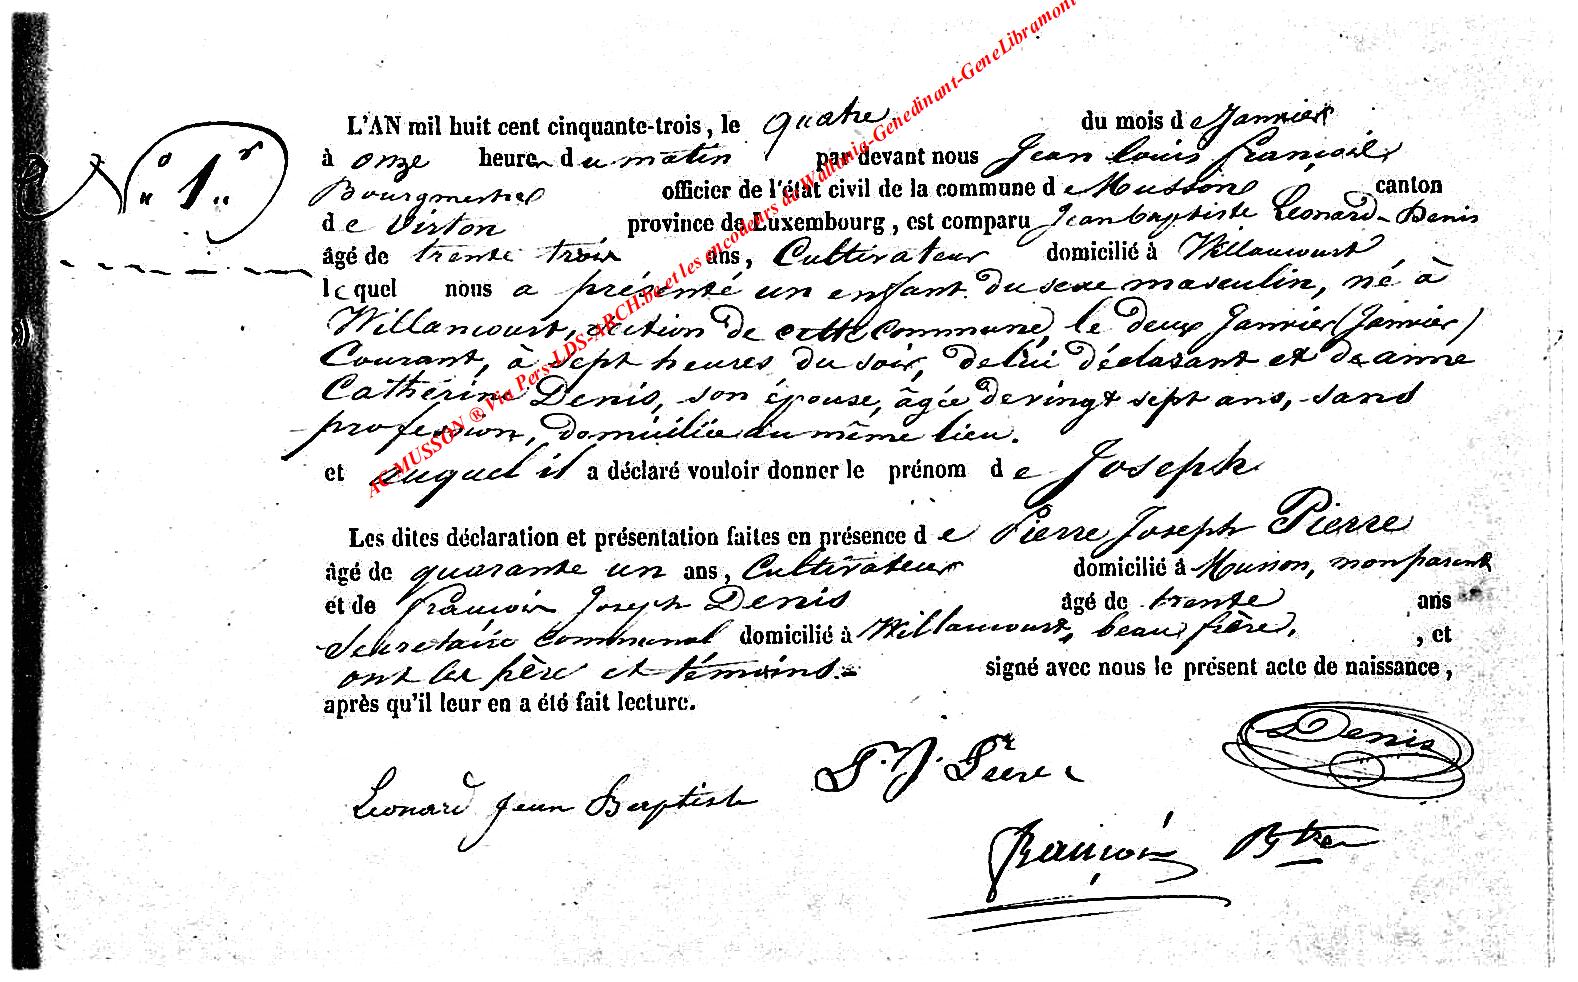 L'AN mil huit cent cinquante-trois, le quatre du mois de Janvier
N° 1er
à onze heures du matin par devant nous Jean louis françois
Bourgmestre officier de l'état civil de la commune de Musson canton
de Virton province de Luxembourg, est comparu Jean baptiste Léonard-Denis
âgé de trente trois ans, Cultivateur domicilié à Willancourt
lequel nous a présenté un enfant du sexe masculin, né à
Willancourt, section de cette commune, le deux Janvier (Janvier)
Courant, à sept heures du soir, de lui déclarant et de anne
Catherine Denis, son épouse, âgée de vingt sept ans, sans
profession, domiciliée au même lieu.
et auquel il a déclaré vouloir donner le prénom de Joseph
Les dites déclaration et présentation faites en présence de Pierre Joseph Pierre
âgé de quarante un ans, Cultivateur domicilié à Musson, non parent
et de françois Joseph Denis âgé de trente ans
Secretaire Communal domicilié à Willancourt, beau frère, , et
ont les père et témoins signé avec nous le présent acte de naissance,
après qu'il leur en a été fait lecture.
Denis
P. J. Pierre
Leonard Jean Baptiste
françois Bgtre
AC MUSSON ® Via Pers-LDS-ARCH.be et les encodeurs de Wallonia-Genedinant-GeneLibramont